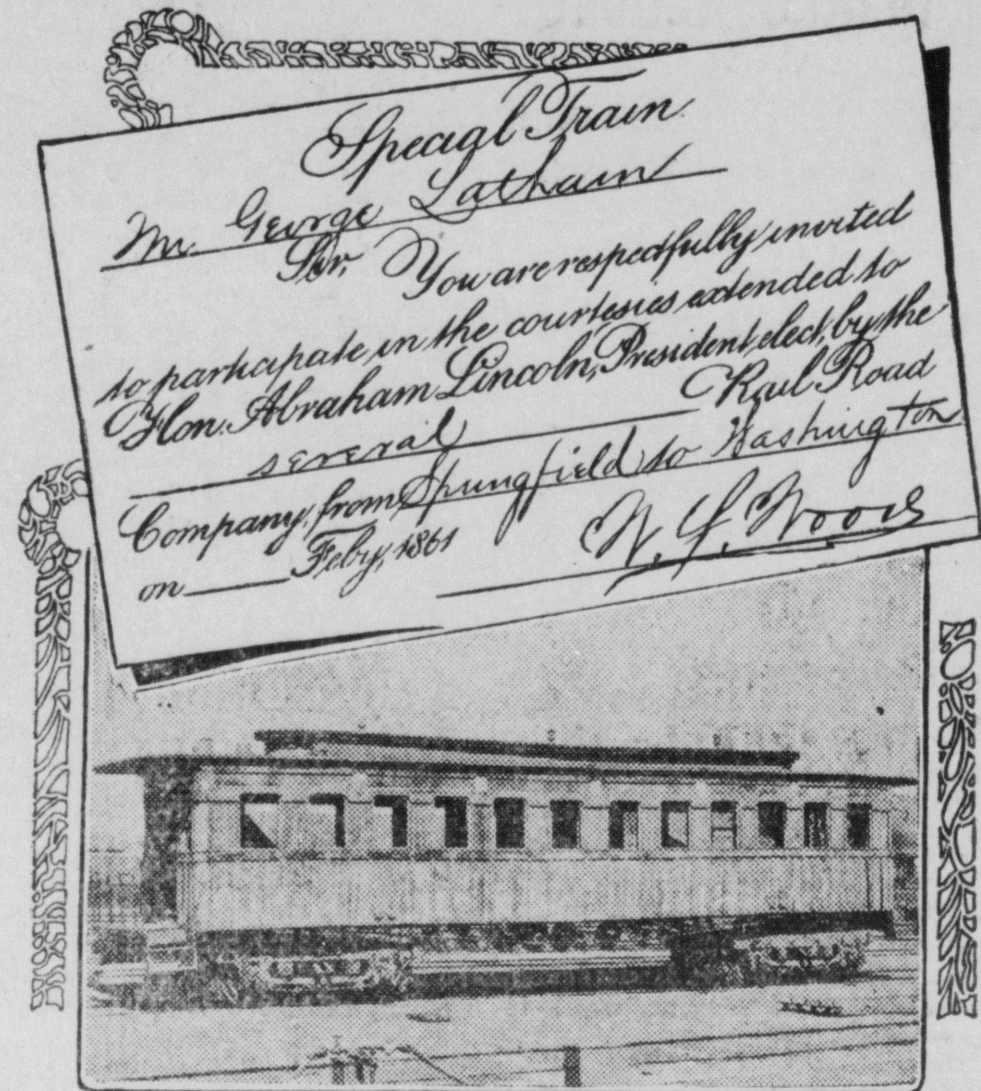 Special Train.
Mr. George Latham
Sir, You are respectfully invited
to participate in the courtesies extended to
Hon. Abraham Lincoln, President elect, by the
several Rail Road
Company, from Springfield to Washington
on Feby, 1861 W. S. Wood